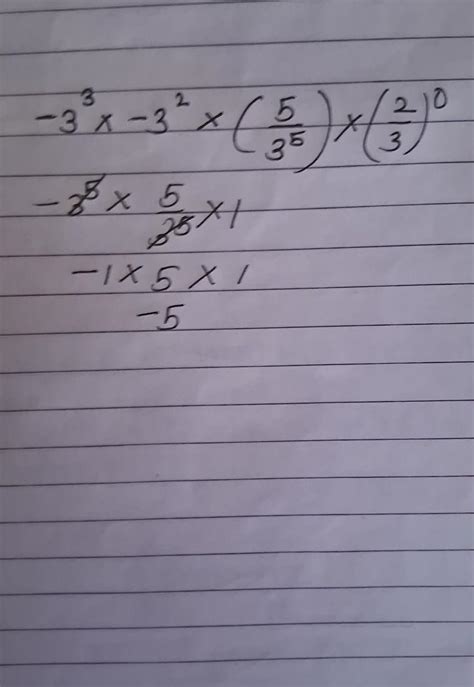 -3³ × -3² × (5/3⁵) × (2/3)⁰
-3⁵ × 5/3⁵ × 1
-1 × 5 × 1
-5